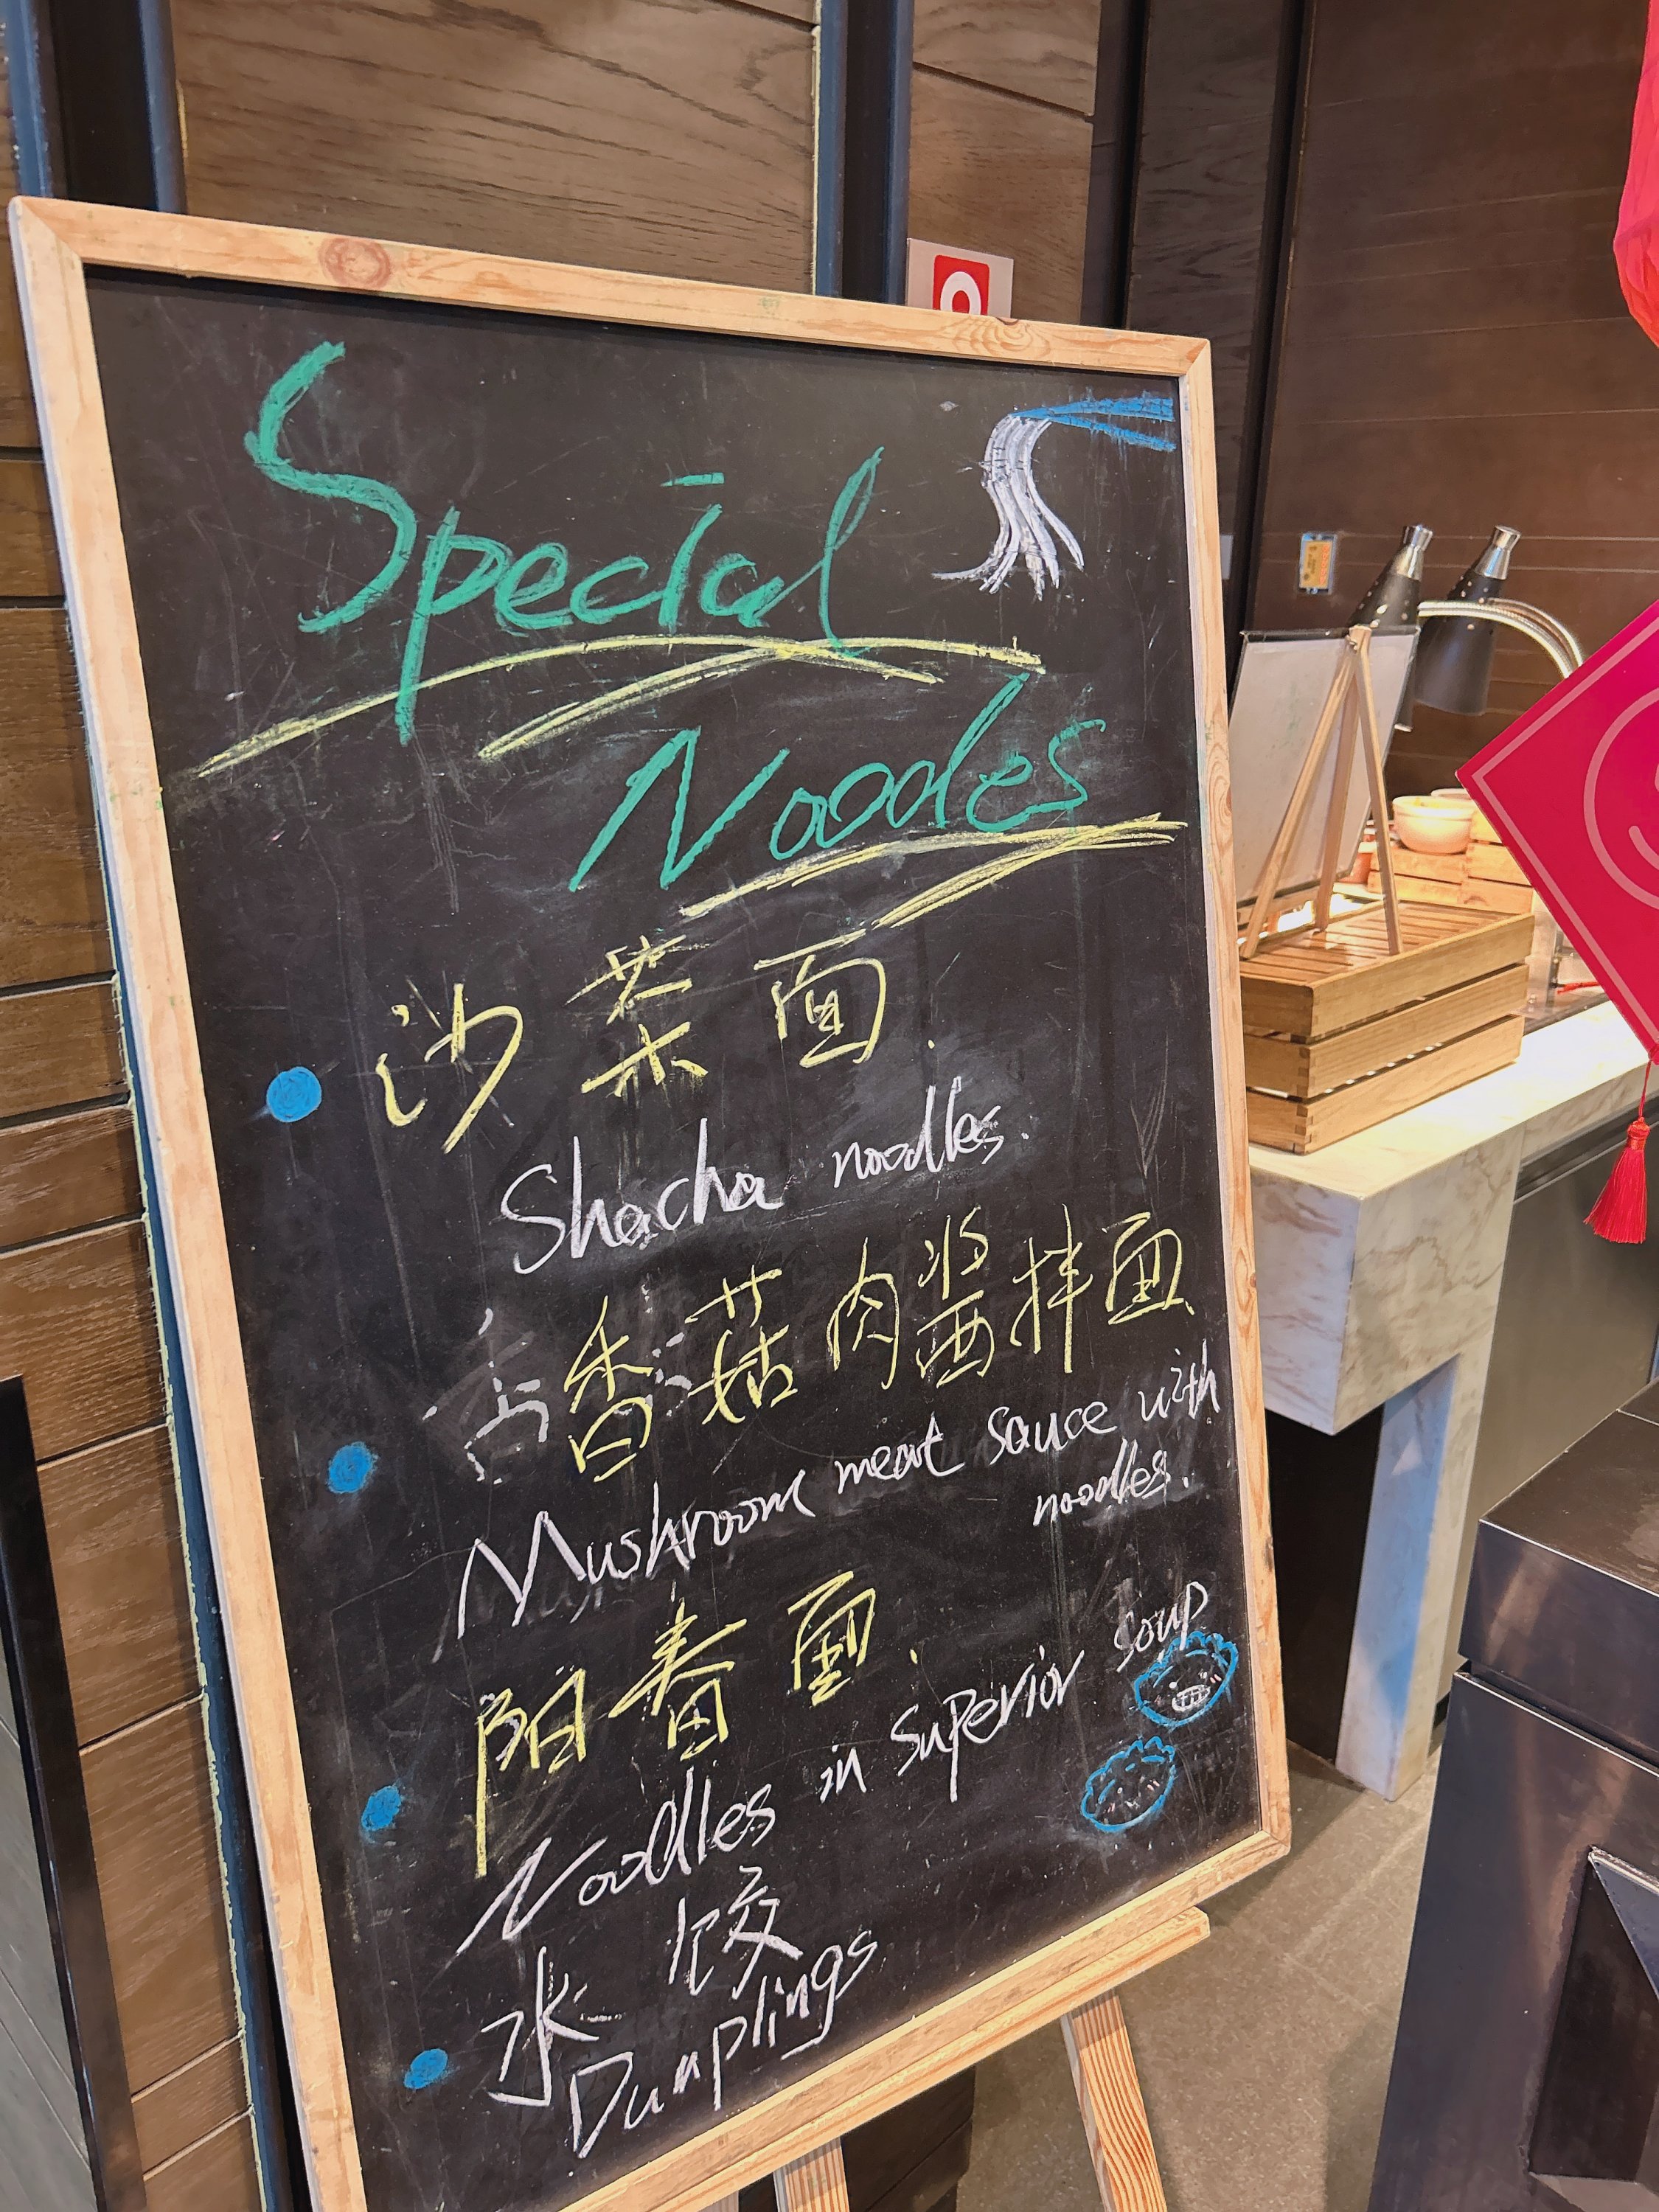 Special
Noodles
沙茶面.
Shacha noodles.
香菇肉酱拌面
Mushroom meat sauce with
noodles.
阳春面.
Noodles in superior soup
水饺
Dumplings